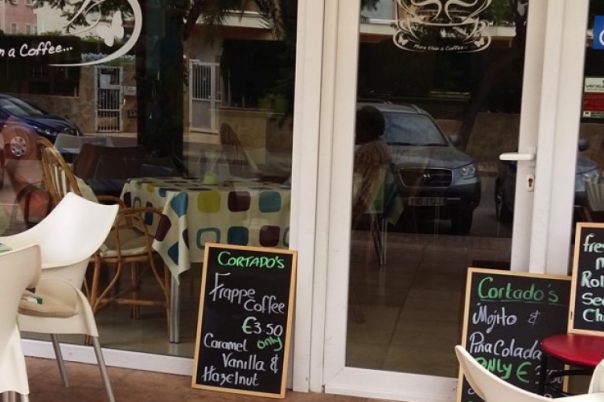 n a Coffee...
More than a Coffee...
CORTADO'S
Frappe
Coffee
€3.50
Caramel only
Vanilla &
Hazelnut
Cortado's
Mojito &
Pina Colada
ONLY €
fre
Rol
Se
Ch